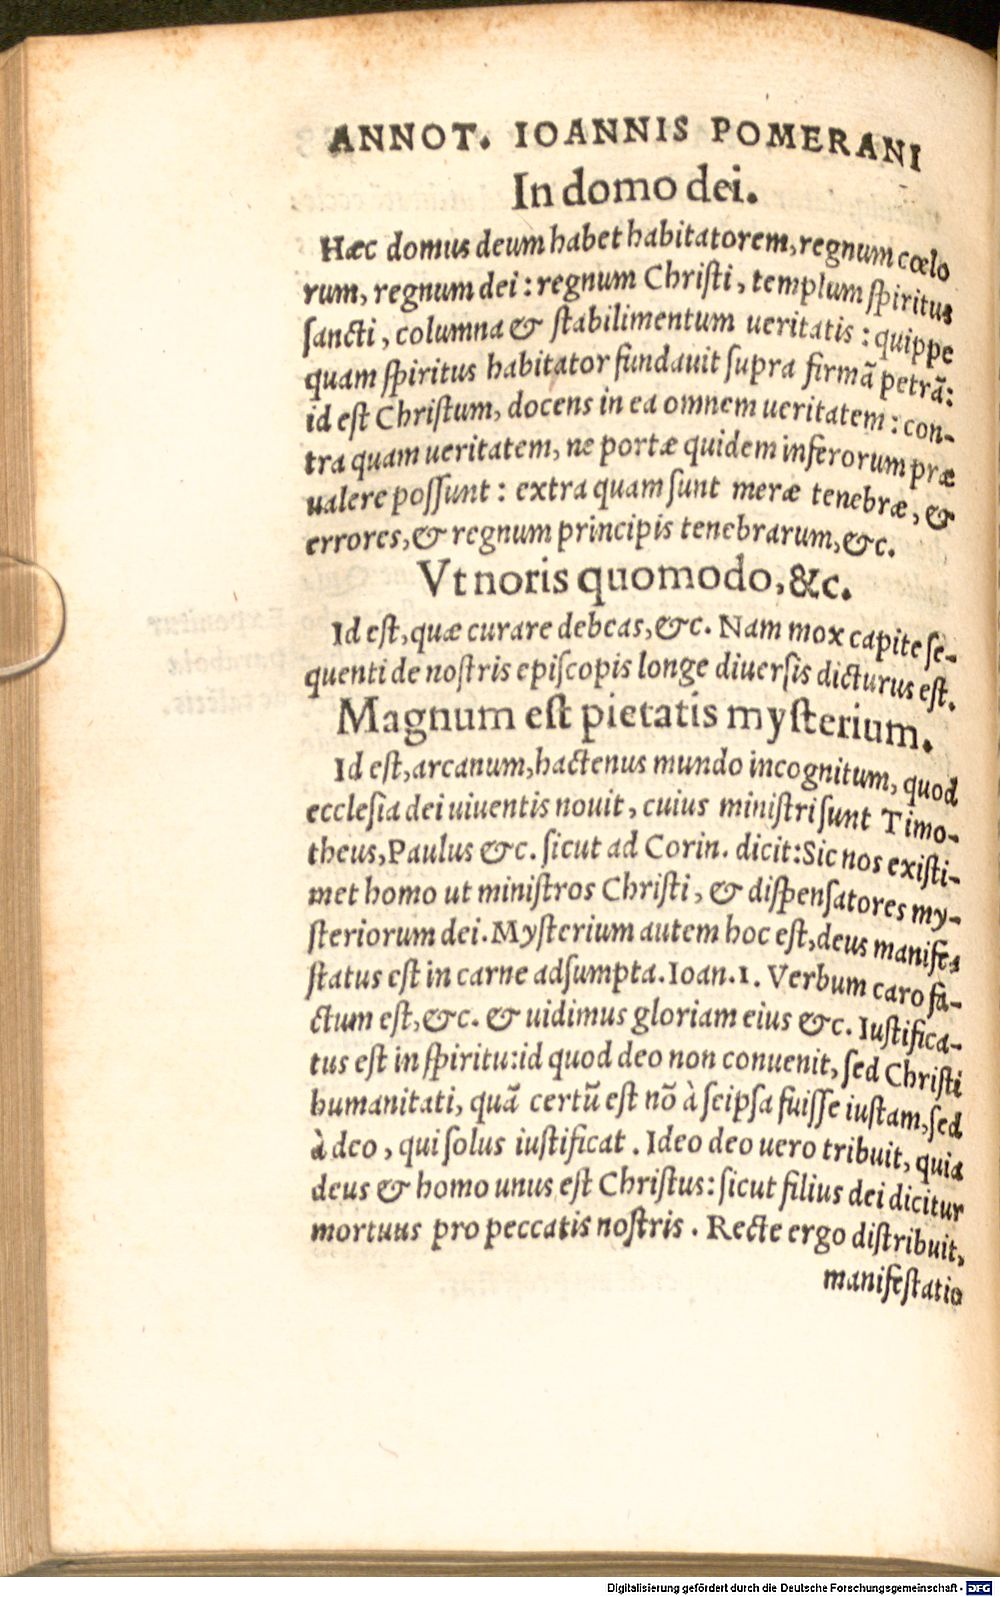 ANNOT. IOANNIS POMERANI
In domo dei.
Hæc domus deum habet habitatorem, regnum cœlo
rum, regnum dei : regnum Chriſti, templum ſpiritus
ſancti, columna & ſtabilimentum ueritatis : quippe
quam ſpiritus habitator fundauit ſupra firmã petrã:
id eſt Chriſtum, docens in ea omnem ueritatem : con-
tra quam ueritatem, ne portæ quidem inferorum præ
ualere poſſunt : extra quam ſunt meræ tenebræ, &
errores, & regnum principis tenebrarum, &c.
Vt noris quomodo, &c.
Id eſt, quæ curare debeas, &c. Nam mox capite ſe-
quenti de noſtris epiſcopis longe diuerſis dicturus eſt.
Magnum eſt pietatis myſterium.
Id eſt, arcanum, hactenus mundo incognitum, quod
eccleſia dei uiuentis nouit, cuius miniſtri ſunt Timo-
theus, Paulus &c. ſicut ad Corin. dicit: Sic nos exiſti-
met homo ut miniſtros Chriſti, & diſpenſatores my-
ſteriorum dei. Myſterium autem hoc eſt, deus manifes
ſtatus eſt in carne adſumpta. Ioan. 1. Verbum caro fa-
ctum eſt, &c. & uidimus gloriam eius &c. Iuſtifica-
tus eſt in ſpiritu: id quod deo non conuenit, ſed Chriſti
humanitati, quã certũ eſt nõ à ſeipſa fuiſſe iuſtam, ſed
à deo, qui ſolus iuſtificat . Ideo deo uero tribuit, quia
deus & homo unus eſt Chriſtus: ſicut filius dei dicitur
mortuus pro peccatis noſtris . Recte ergo diſtribuit,
manifeſtatio
Digitalisierung gefördert durch die Deutsche Forschungsgemeinschaft - DFG